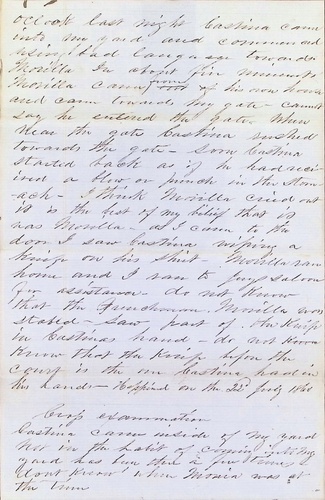 oclock last night Castina came
into my yard and commenced
using bad language towards
Morilla In about five minutes
Morilla came out of his own house
and came towards my gate - cannot
say he entered the gate. When
near the gate Castina rushed
towards the gate - soon Castina
started back as if he had recei
ved a blow or punch in the Stom
ach - I think Morilla cried out
it is the best of my belief that it
was Morilla - as I came to the
door I saw Castina wiping a
knife on his shirt - Morilla ran
home and I ran to saloon
for assistance - do not know
that the Frenchman Morilla was
stabed - Saw part of the Knife
in Castinas hand - do not know
Know that the Knife before the
court is the one Castina had in
his hands - Happened on the 22 July 186
Cross examination
Castina came inside of my yard
Not in the habit of coming into my
yard has been there a few times
dont know when was at
the time